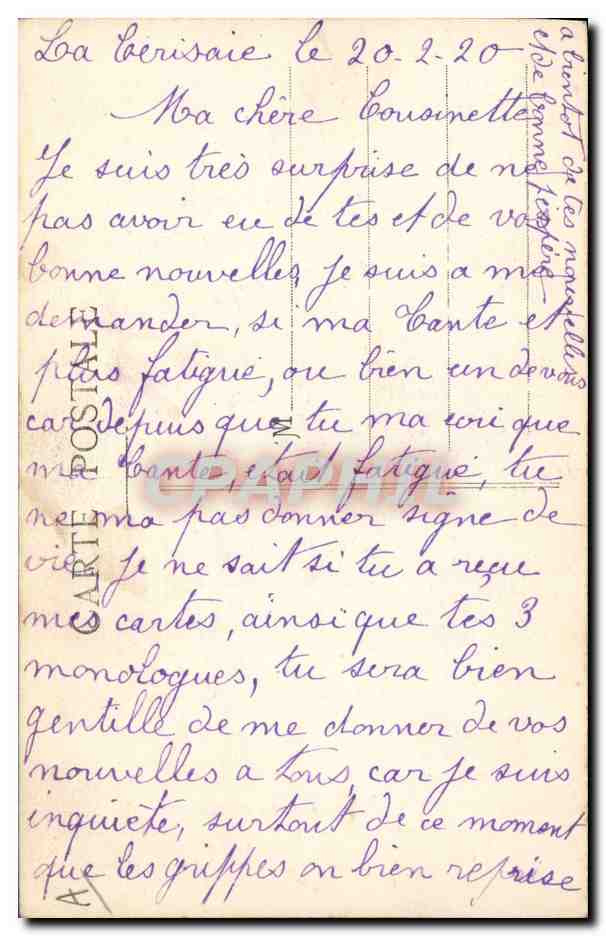 La Cerisaie le 20-2-20
Ma chère Cousinette
Je suis très surprise de ne
pas avoir eu de tes et de vos
bonne nouvelles, Je suis a me
demander, si ma Tante et
plus fatigué, ou bien un de vous
car depuis que tu ma ecri que
ma Tante, etait fatigué, tu
ne ma pas donner signe de
vie, Je ne sait si tu a reçu
mes cartes, ainsi que tes 3
monologues, tu sera bien
gentille de me donner de vos
nouvelles a tous, car je suis
inquiète, surtout de ce moment
que les grippes on bien reprise
a bientot de tes nouvelles
et de bonne j'espère
CARTE POSTALE
M
CPAPHIL
A